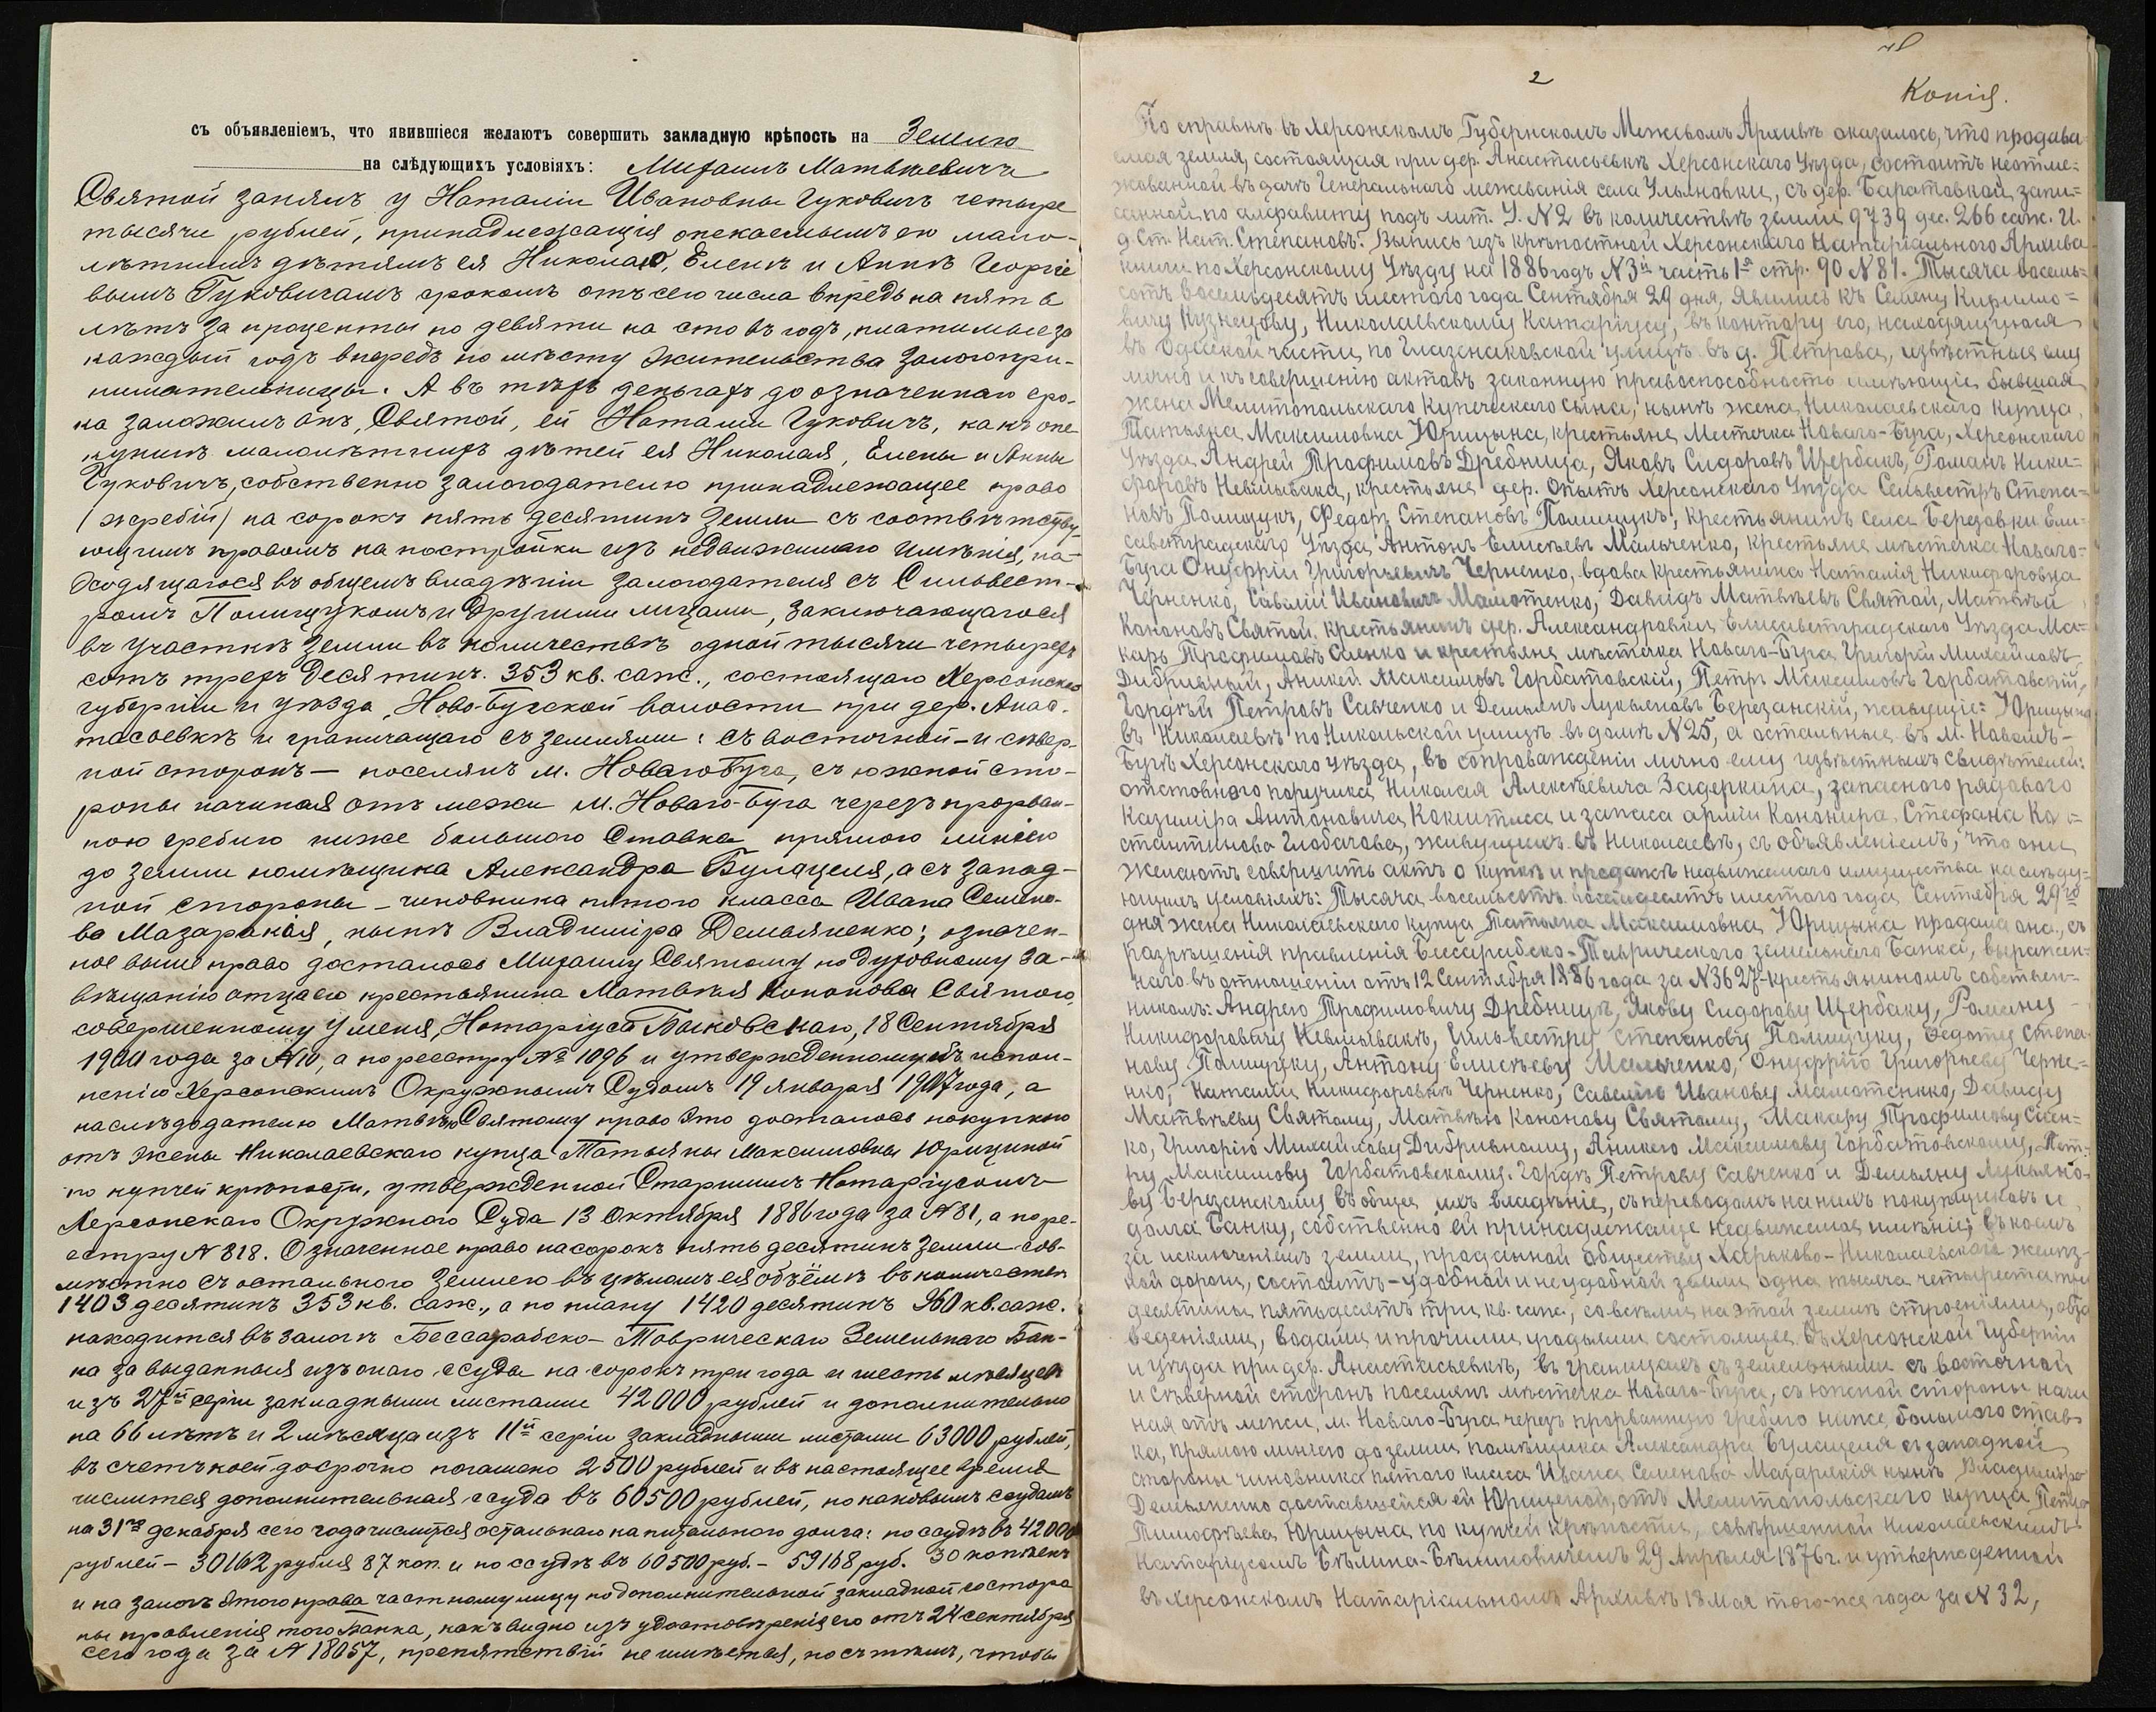 съ объявленіемъ, что явившіеся желаютъ совершить закладную крѣпость на Землю
на слѣдующихъ условіяхъ: Михаилъ Матвѣевичъ
Святой занялъ у Наталіи Ивановны Гуковичъ четыре
тысячи рублей, принадлежащія опекаемымъ ею мало-
лѣтнимъ дѣтямъ ея Николаю, Еленѣ и Аннѣ Георгіе
вымъ Гуковичамъ срокомъ отъ сего числа впредь на пять
лѣтъ за проценты по девяти на сто въ годъ, платимые за
каждый годъ впередъ по мѣсту жительства залогопри-
нимательницы. А въ тѣхъ деньгахъ до означеннаго сро-
ка заложилъ онъ, Святой, ей Наталіи Гуковичъ, какъ опе
куншѣ малолѣтнихъ дѣтей ея Николая, Елены и Анны
Гуковичъ, собственно залогодателю принадлежащее право
(жребій) на сорокъ пять десятинъ земли съ соотвѣтству-
ющимъ правомъ на постройки изъ недвижимаго имѣнія, на-
ходящагося въ общемъ владѣніи залогодателя съ Сильвест-
ромъ Полищукомъ и другими лицами, заключающагося
въ участкѣ земли въ количествѣ одной тысячи четырех
сотъ трехъ десятинъ. 353 кв. саж., состоящаго Херсонской
губерніи и уѣзда, Ново-Бугской волости при дер. Анас-
тасьевкѣ и граничащаго съ землями: съ восточной – и сѣвер-
ной сторонъ – поселянъ м. Новаго Буга, съ южной сто-
роны начиная отъ межи м. Новаго-Буга черезъ прорван-
ную греблю ниже большого Ставка прямою линіею
до земли помѣщика Александра Булацеля, а съ запад-
ной стороны – чиновника пятого класса Ивана Семено-
ва Мазаракія, нынѣ Владиміра Демьяненко; означен-
ное выше право досталось Михаилу Святому по духовному за-
вѣщанію отца его крестьянина Матвѣя Кононова Святого,
совершенному у меня, Нотаріуса Быковскаго, 18 Сентября
года за №10, а по реестру №1096 и утвержденному къ испол-
ненію Херсонскимъ Окружнымъ Судомъ 19 Января 1907 года, а
наслѣдодателю Матвѣю Святому право это досталось покупкою
отъ жены Николаевскаго купца Татьяны Максимовны Юрицыной
по купчей крѣпости, утвержденной Старшимъ Нотаріусомъ
Херсонскаго Окружного Суда 13 Октября 1886 года за №81, а по ре-
естру №818. Означенное право на сорокъ пять десятинъ земли сов-
мѣстно съ остального землею въ цѣломъ ея объёмѣ въ количествѣ
1403 десятинъ 353 кв. саж., а по плану 1420 десятинъ 960 кв. саж.
находится въ залогѣ Бессарабско-Таврическаго Земельнаго Бан-
ка за выданныя изъ онаго ссуды на сорокъ три года и шесть мѣсяцевъ
изъ 27й серіи закладными листами 42000 рублей и дополнительно
на 66 лѣтъ и 2 мѣсяца изъ 11й серіи закладными листами 63000 рублей,
въ счетъ коей досрочно погашено 2500 рублей и въ настоящее время
числится дополнительная ссуда въ 60500 рублей, по каковымъ ссудамъ
на 31го декабря сего года числится остального капитального долга: по ссудѣ въ 42000
рублей – 30162 рубля 87 коп. и по ссудѣ въ 60500 руб. – 59168 руб. 30 копѣекъ
и на залогъ этого права частному лицу по дополнительной закладной со сторо
ны правленія того Банка, какъ видно изъ удостовѣренія его отъ 24 сентября
сего года за №18057, препятствій не имѣется, но съ тѣмъ, чтобы
2
Копія.
По справкѣ въ Херсонскомъ Губернскомъ Межевомъ Архивѣ оказалось, что продава
емая земля, состоящая при дер. Анастасьевкѣ Херсонскаго Уѣзда, состоитъ неотме-
жованной въ дачѣ Генеральнаго межеванія села Ульяновки, съ дер. Баратовкой, запи-
санной по алфавиту подъ лит. У. №2 въ количествѣ земли 9739 дес. 266 саж. И.
д. Ст. Нат. Степановъ. Выпись изъ крѣпостной Херсонскаго Натаріальнаго Архива
книги по Херсонскому Уѣзду на 1886 годъ №3й часть 1я стр. 90 №81. Тысяча восемь-
сотъ восемьдесятъ шестого года Сентября 29 дня, явились къ Семену Кирилло-
вичу Кузнецову, Николаевскому Натаріусу, въ контору его, находящуюся
въ Одесской части, по Глазенаповской улицѣ въ д. Петрова, извѣстные ему
лично и къ совершенію актовъ законную правоспособность имѣющіе бывшая
жена Мелитопольскаго Купеческаго сына, нынѣ жена Николаевскаго купца,
Татьяна Максимовна Юрицына, крестьяне Местечка Новаго-Буга, Херсонскаго
Уѣзда Андрей Трофимовъ Дребница, Яковъ Сидоровъ Щербакъ, Романъ Ники-
форовъ Невлывака, крестьяне дер. Опытъ Херсонскаго Уѣзда Сельвестръ Степа-
новъ Полищукъ, Федотъ Степановъ Полищукъ, крестьянинъ села Березовки Ели-
саветградскаго Уѣзда Антонъ Елисѣевъ Мальченко, крестьяне мѣстечка Новаго-
Буга Онуфрій Григорьевичъ Черненко, вдова крестьянина Наталія Никифоровна
Черненко, Савелій Ивановичъ Мамотенко, Давидъ Матвѣевъ Святой, Матвѣй
Кононовъ Святой, крестьянинъ дер. Александровки, Елисаветградскаго Уѣзда Ма-
каръ Трофимовъ Сиенко и крестьяне мѣстечка Новаго-Буга Григорій Михайловъ
Дибривный, Аникей Максимовъ Горбатовскій, Петръ Максимовъ Горбатовскій,
Гордѣй Петровъ Савченко и Демьянъ Лукьяновъ Березанскій, живущіе: Юрицына
въ Николаевѣ по Никольской улицѣ въ домѣ №25, а остальные въ м. Новомъ-
Бугѣ Херсонскаго уѣзда, въ сопровожденіи лично ему извѣстныхъ свидѣтелей:
отставного поручика Николая Алексѣевича Задеркина, запасного рядового
Казиміра Антоновича и запаса арміи Канонира Стефана Ко-
стантинова Глобачова, живущихъ въ Николаевѣ, съ объявленіемъ, что они
желаютъ совершить актъ о куплѣ и продажѣ недвижимаго имущества на слѣду-
ющихъ условіяхъ: Тысяча восемьсотъ восемьдесятъ шестого года Сентября 29го
дня жена Николаевскаго купца Татьяна Максимовна Юрицына продала она, съ
разрѣшенія правленія Бессарабско-Таврическаго земельнаго Банка, выражен-
наго въ отношеніи отъ 12 Сентября 1886 года за №3627 крестьяниномъ собствен-
никомъ: Андрею Трофимовичу Дребницѣ, Якову Сидорову Щербаку, Роману
Никифоровичу Невлывакѣ, Сильвестру Степанову Полищуку, Федоту Степа-
нову Полищуку, Антону Елисѣеву Мальченко, Онуфрію Григорьеву Черне-
нко, Наталіи Никифоровнѣ Черненко, Савелію Иванову Мамотенко, Давиду
Матвѣеву Святому, Матвѣю Кононову Святому, Макару Трофимову Сиен-
ко, Григорію Михайлову Дибривному, Аникею Максимову Горбатовскому, Пет-
ру Максимову Горбатовскому, Гордѣ Петрову Савченко и Демьяну Лукьяно-
ву Березанскому въ общее ихъ владѣніе, съ переводомъ на нихъ покупщиковъ и
долга Банку, собственно ей принадлежаще недвижимое имѣніе, въ коемъ
за исключеніемъ земли, проданной обществу Харьково-Николаевской желѣз-
ной дороги, состоитъ – удобной и неудобной земли одна тысяча четыреста три
десятины пятьдесятъ три кв. саж., со всѣми на этой землѣ строеніями, обза
веденіями, водами и прочими угодьями состоящее въ Херсонской Губерніи
и уѣзда при дер. Анастасьевкѣ, въ границахъ съ земельными съ восточной
и сѣверной сторонъ поселянъ мѣстечка Новаго-Буга, съ южной стороны начи
ная отъ межи, м. Новаго-Буга черезъ прорванную греблю ниже большого став-
ка, прямою линіею до земли помѣщика Александра Булацеля съ западной
стороны чиновника пятого класа Ивана Семенова Мазаракія нынѣ Владиміра
Демьяненко доставшейся ей Юрицыной, отъ Мелитопольскаго купца Петра
Тимофѣева Юрицына по купчей крѣпости, совершенной Николаевскимъ
Натаріусомъ Бѣлина-Бѣлиновичемъ 29 Апрѣля 1876 г. и утвержденной
въ Херсонскомъ Натаріальномъ Архивѣ 18 мая того-же года за №32,